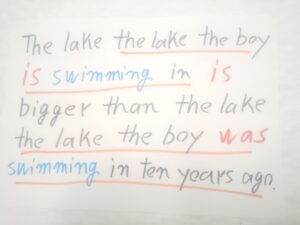 The lake the lake the boy
is swimming in is
bigger than the lake
the lake the boy was
swimming in ten years ago.